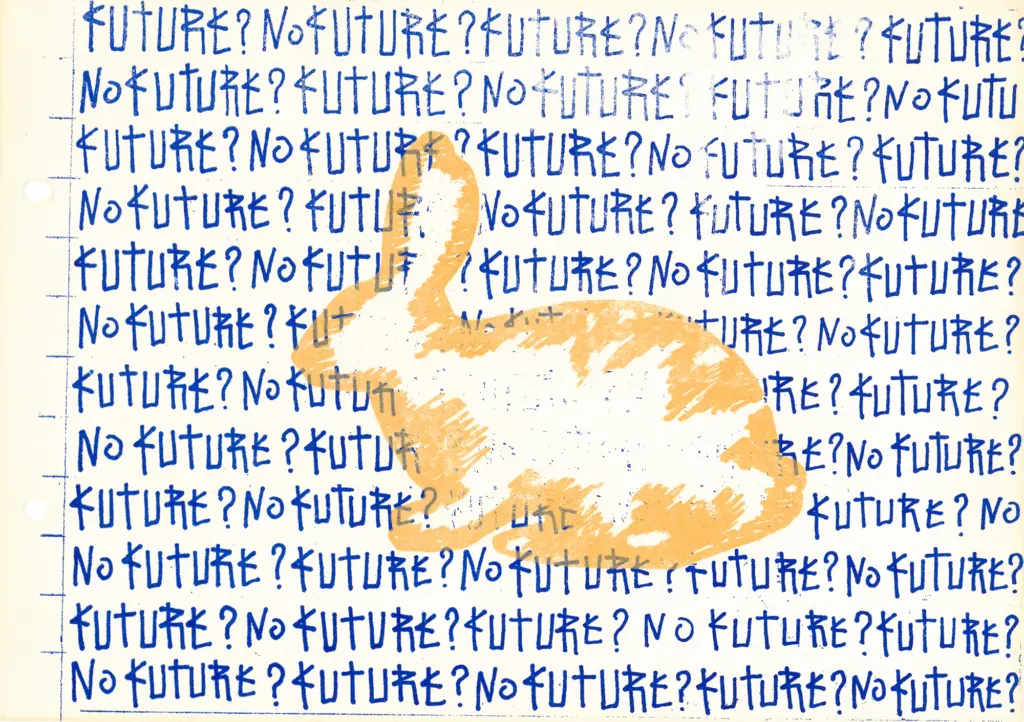 FUTURE? NO FUTURE? FUTURE? NO FUTURE? FUTURE?
NO FUTURE? FUTURE? NO FUTURE? FUTURE? NO FUTU
FUTURE? NO FUTURE? FUTURE? NO FUTURE? FUTURE?
NO FUTURE? FUTUR NO FUTURE? FUTURE? NO FUTURE
FUTURE? NO FUTUR ? FUTURE? NO FUTURE? FUTURE?
NO FUTURE? FUT NO FUT TURE? NO FUTURE?
FUTURE? NO FUTUR RE? FUTURE?
NO FUTURE? FUTUR RE? NO FUTURE?
FUTURE? NO FUTURE? URE FUTURE? NO
NO FUTURE? FUTURE? NO FUTURE? FUTURE? NO FUTURE?
FUTURE? NO FUTURE? FUTURE? NO FUTURE? FUTURE?
NO FUTURE? FUTURE? NO FUTURE? FUTURE? NO FUTURE?